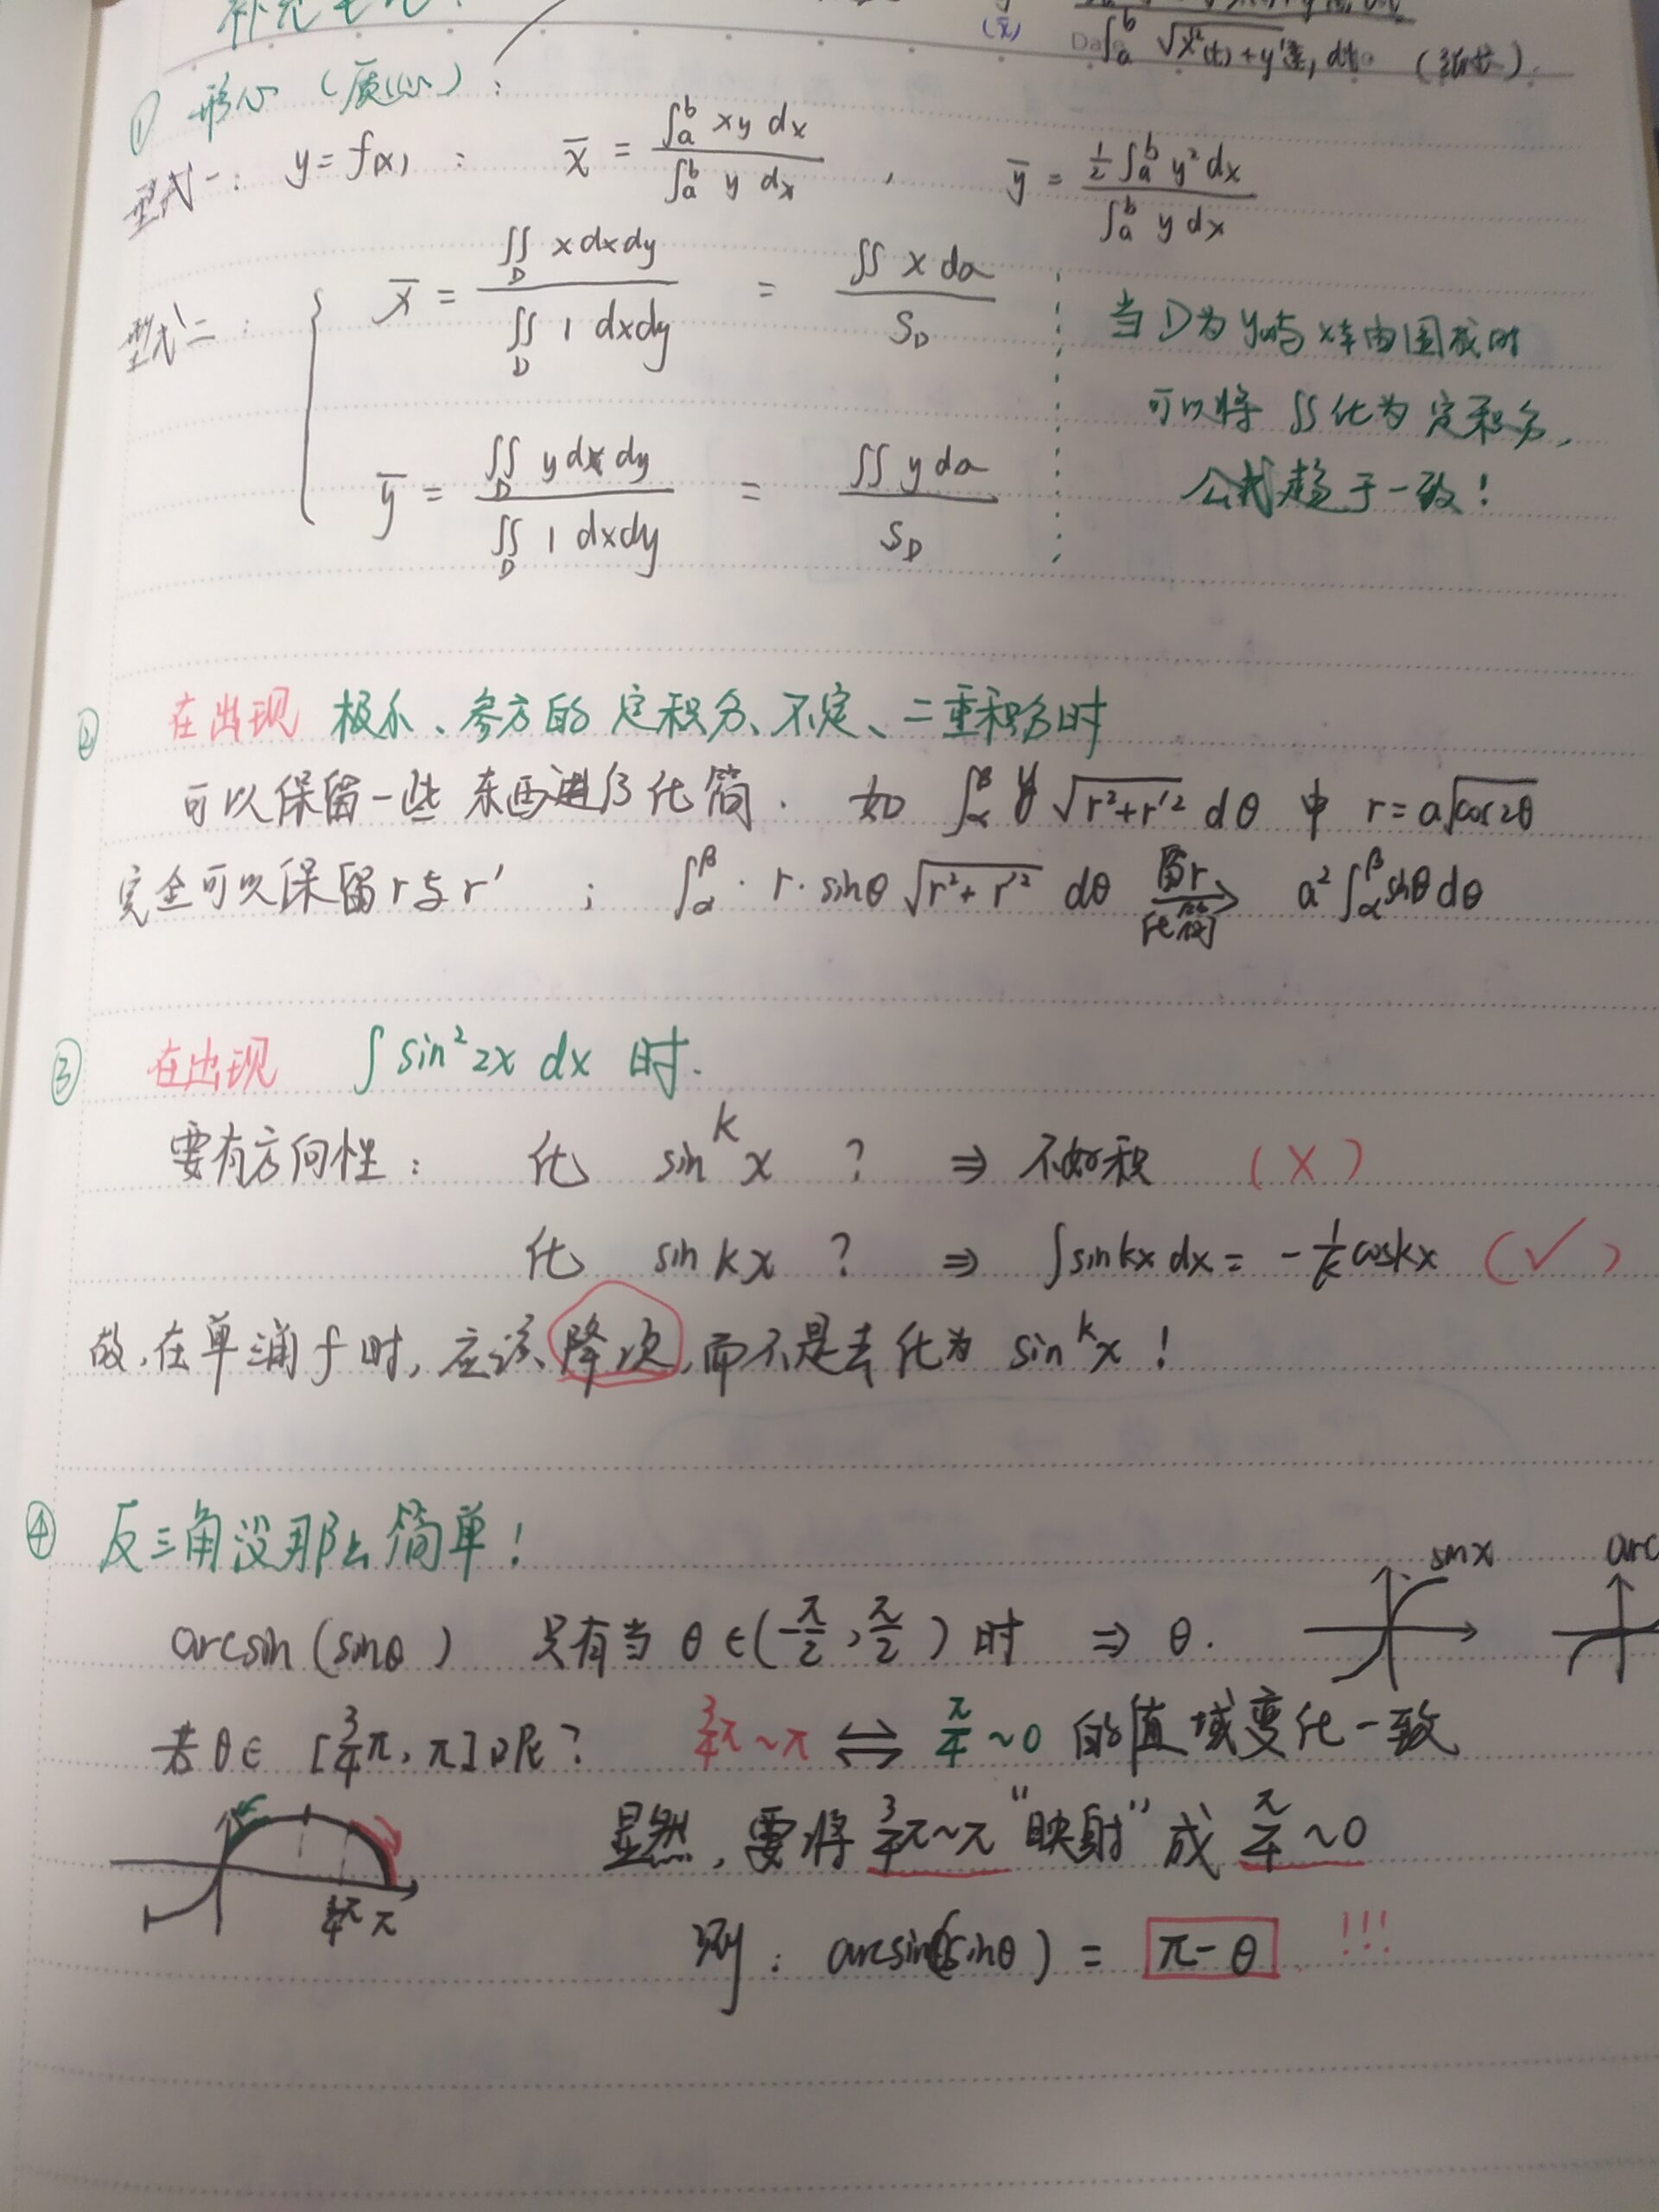 (x̄) ∫ₐᵇ √x'²(t)+y'²(t) dt (弧长).
① 形心 (质心):
型式一: y=f(x) : x̄ = ∫ₐᵇ xy dx / ∫ₐᵇ y dx , ȳ = ½∫ₐᵇ y² dx / ∫ₐᵇ y dx
型式二: { x̄ = ∬_D x dxdy / ∬_D 1 dxdy = ∬ x dσ / S_D
ȳ = ∬_D y dx dy / ∬_D 1 dxdy = ∬ y dσ / S_D
当D为y(x)与x轴由围成时
可以将∬化为定积分,
公式趋于一致!
② 在出现 极尔、参方的定积分、不定、二重积分时
可以保留一些东西进行化简. 如 ∫_α^β y √r²+r'² dθ 中 r=a√cos2θ
完全可以保留r与r' ; ∫_α^β · r·sinθ √r²+r'² dθ 留r 化简 → a²∫_α^β sinθ dθ
③ 在出现 ∫sin²2x dx 时.
要有方向性: 化 sinᵏx ? ⇒ 不好积 (X)
化 sin kx ? ⇒ ∫sin kx dx = -1/k cos kx (✓)
故,在单调f时,应该降次,而不是去化为 sinᵏx !
④ 反三角没那么简单!
sinx arc
arcsin(sinθ) 只有当 θ∈(-π/2, π/2) 时 ⇒ θ.
若θ∈[3/4π, π]呢? 3/4π~π ⇔ π/4~0 的值域变化一致
显然,要将 3/4π~π "映射" 成 π/4~0
3/4π π
则: arcsin(sinθ) = π-θ !!!